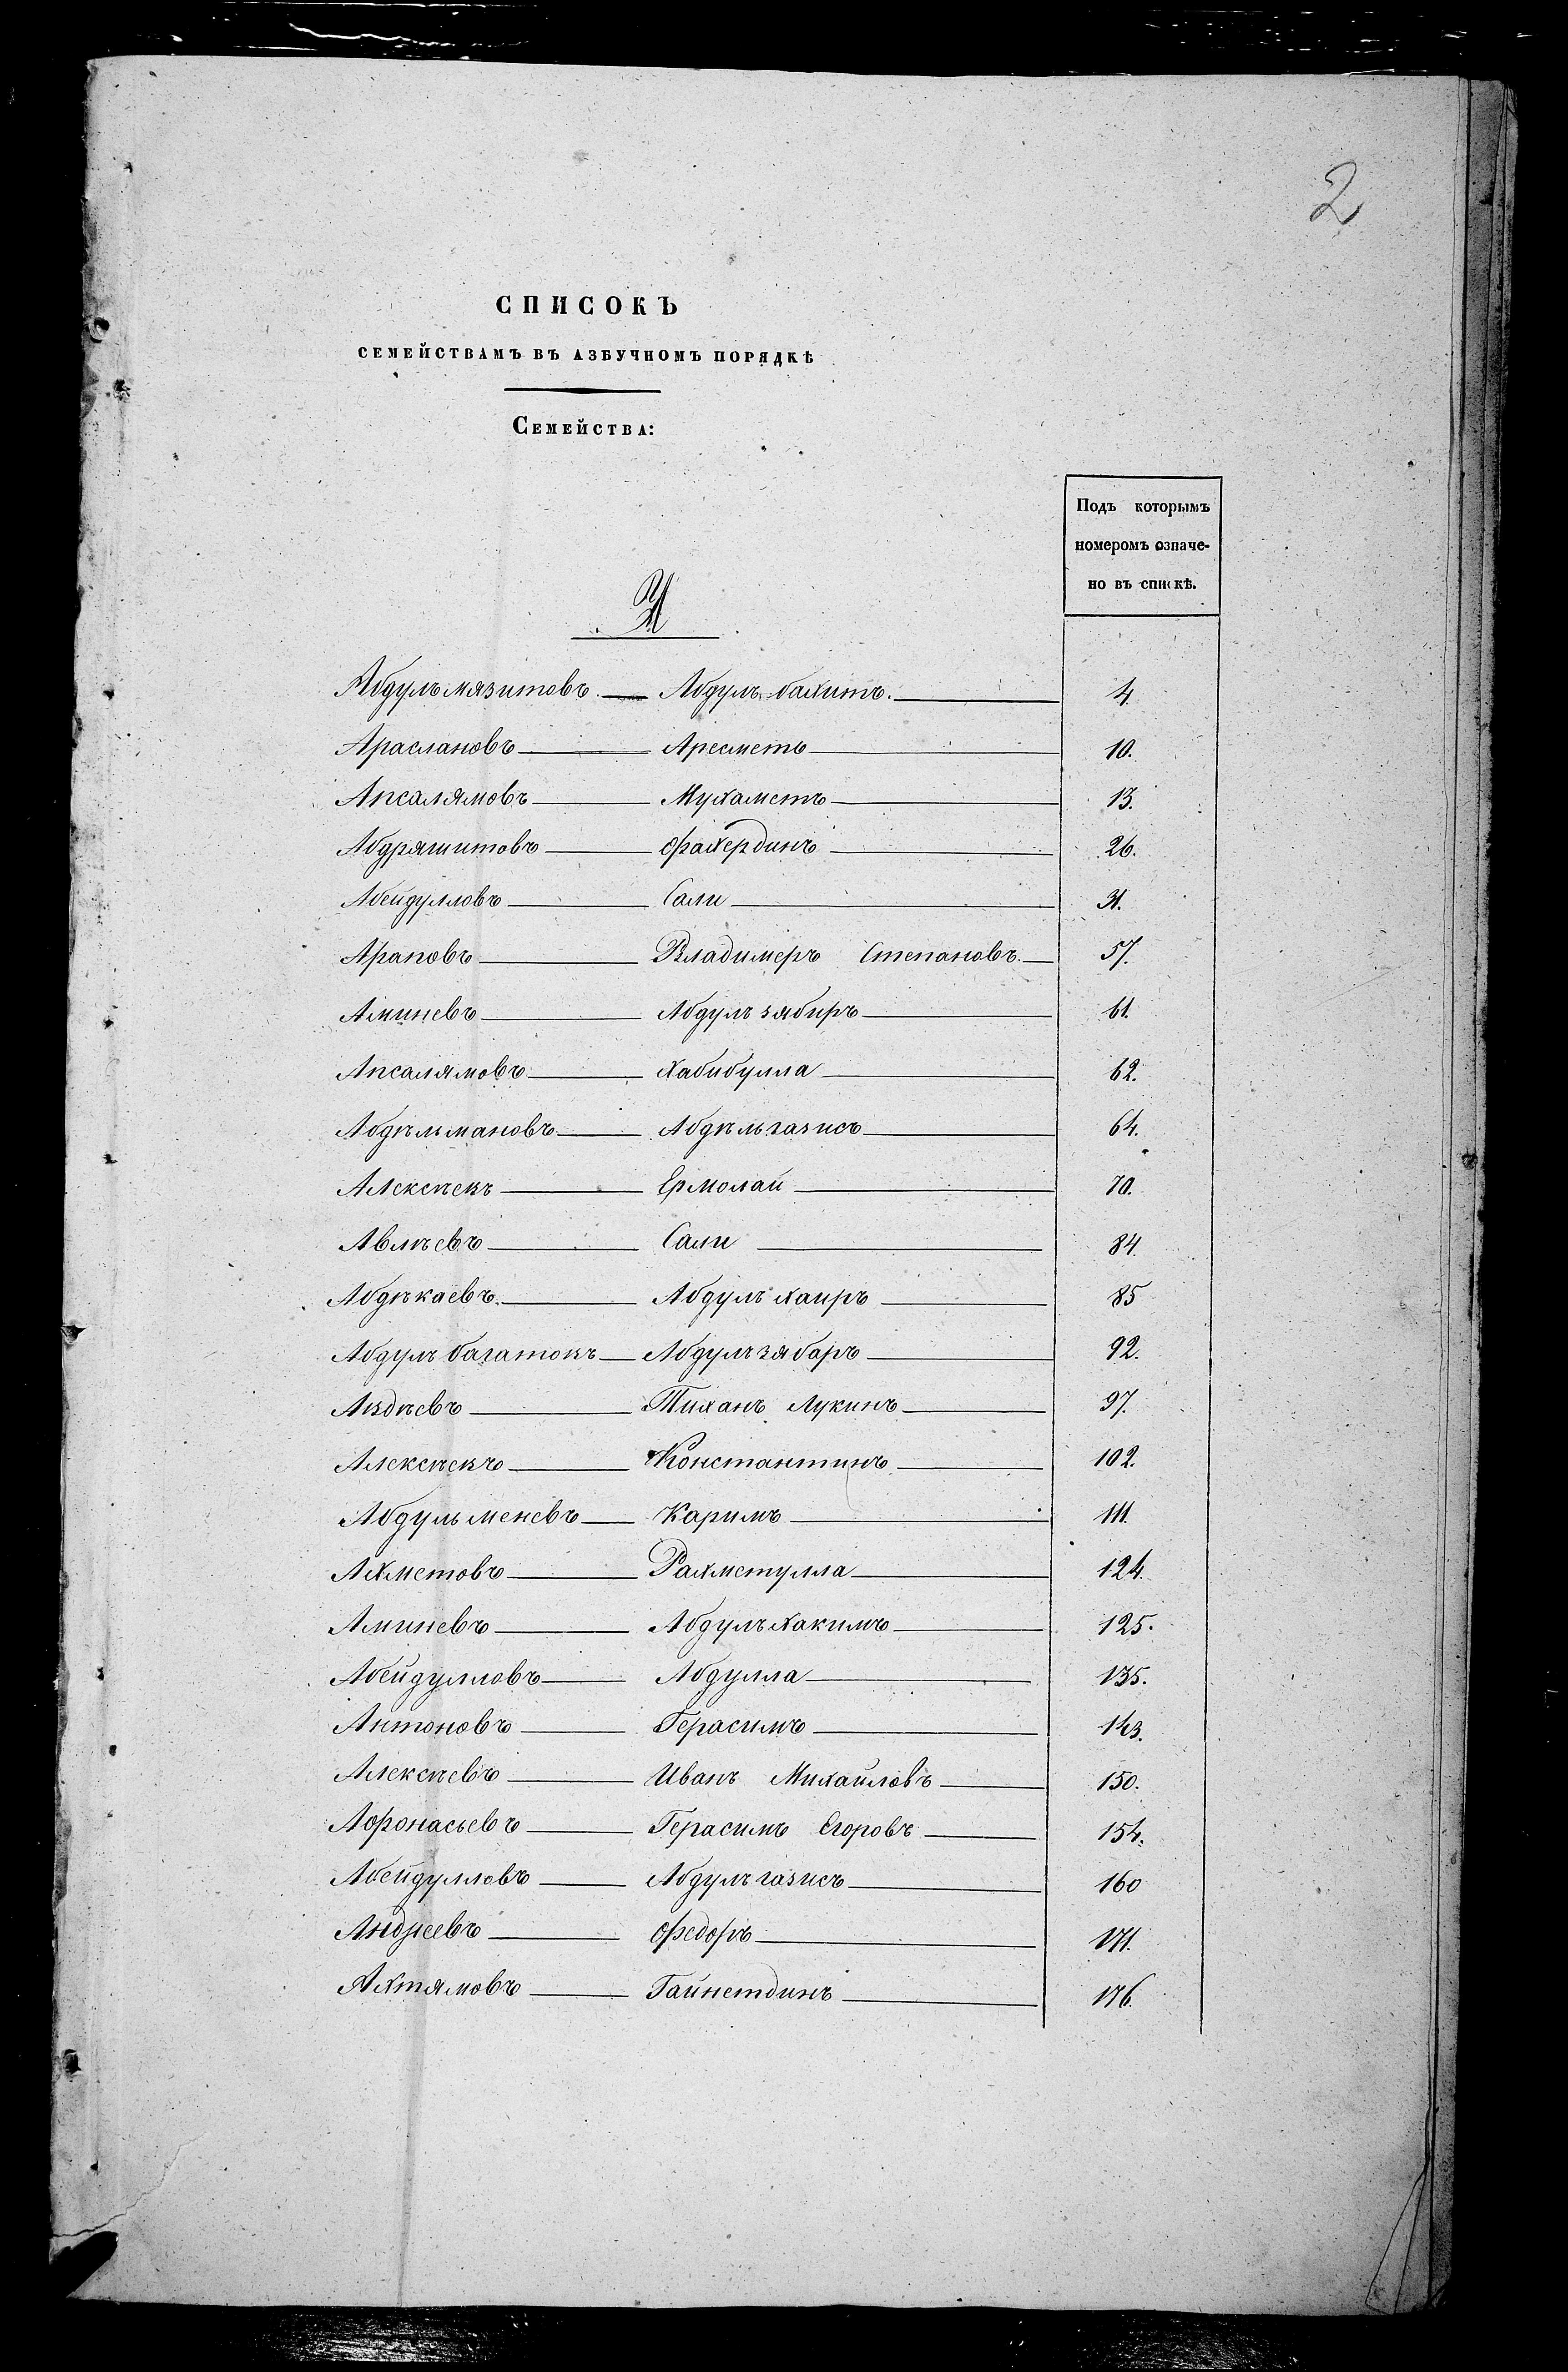 2
СПИСОКЪ
СЕМЕЙСТВАМЪ ВЪ АЗБУЧНОМЪ ПОРЯДКѢ
СЕМЕЙСТВА:
Подъ которымъ
номеромъ означе-
но въ спискѣ.
А
Абдулъмязитовъ. Абдулъ-бахитъ. 4
Араслановъ Аресметь 10.
Апсалямовъ Мухаметъ 13.
Абдряшитовъ Фахердинъ 26.
Абейдулловъ Сали 31.
Араповъ Владимеръ Степановъ. 57.
Аминевъ Абдулъзябиръ 61.
Апсалямовъ Хабибулла 62.
Абдѣльмановъ Абдѣльгазисъ 64.
Алексѣевъ Ермолай 70.
Авлѣевъ Сали 84.
Абдѣкаевъ. Абдулъхаиръ 85
Абдулъбагатовъ Абдулъзябаръ 92.
Авдѣевъ Тиханъ Лукинъ 97.
Алексѣевъ Константинъ 102.
Абдульменевъ Каримъ 111.
Ахметовъ Рахметулла 124.
Аминевъ Абдулъхакимъ 125.
Абейдулловъ Абдулла 135.
Антоновъ Герасимъ 143.
Алексѣевъ Иванъ Михайловъ 150.
Афонасьевъ Герасимъ Егоровъ 154.
Абейдулловъ Абдулъгазисъ 160
Андреевъ Федоръ 171.
Ахтямовъ Гайнетдинъ 176.